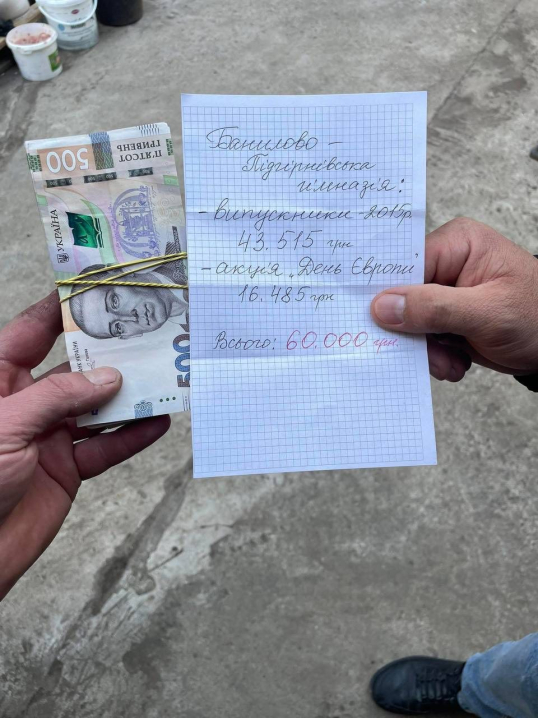 500
П'ЯТСОТ
ГРИВЕНЬ
УКРАЇНА
500
Банилово –
Підгірнівська
гімназія:
- випускники - 2015р
43.515 грн
- акція „День Європи"
16.485 грн
Всього: 60.000 грн.